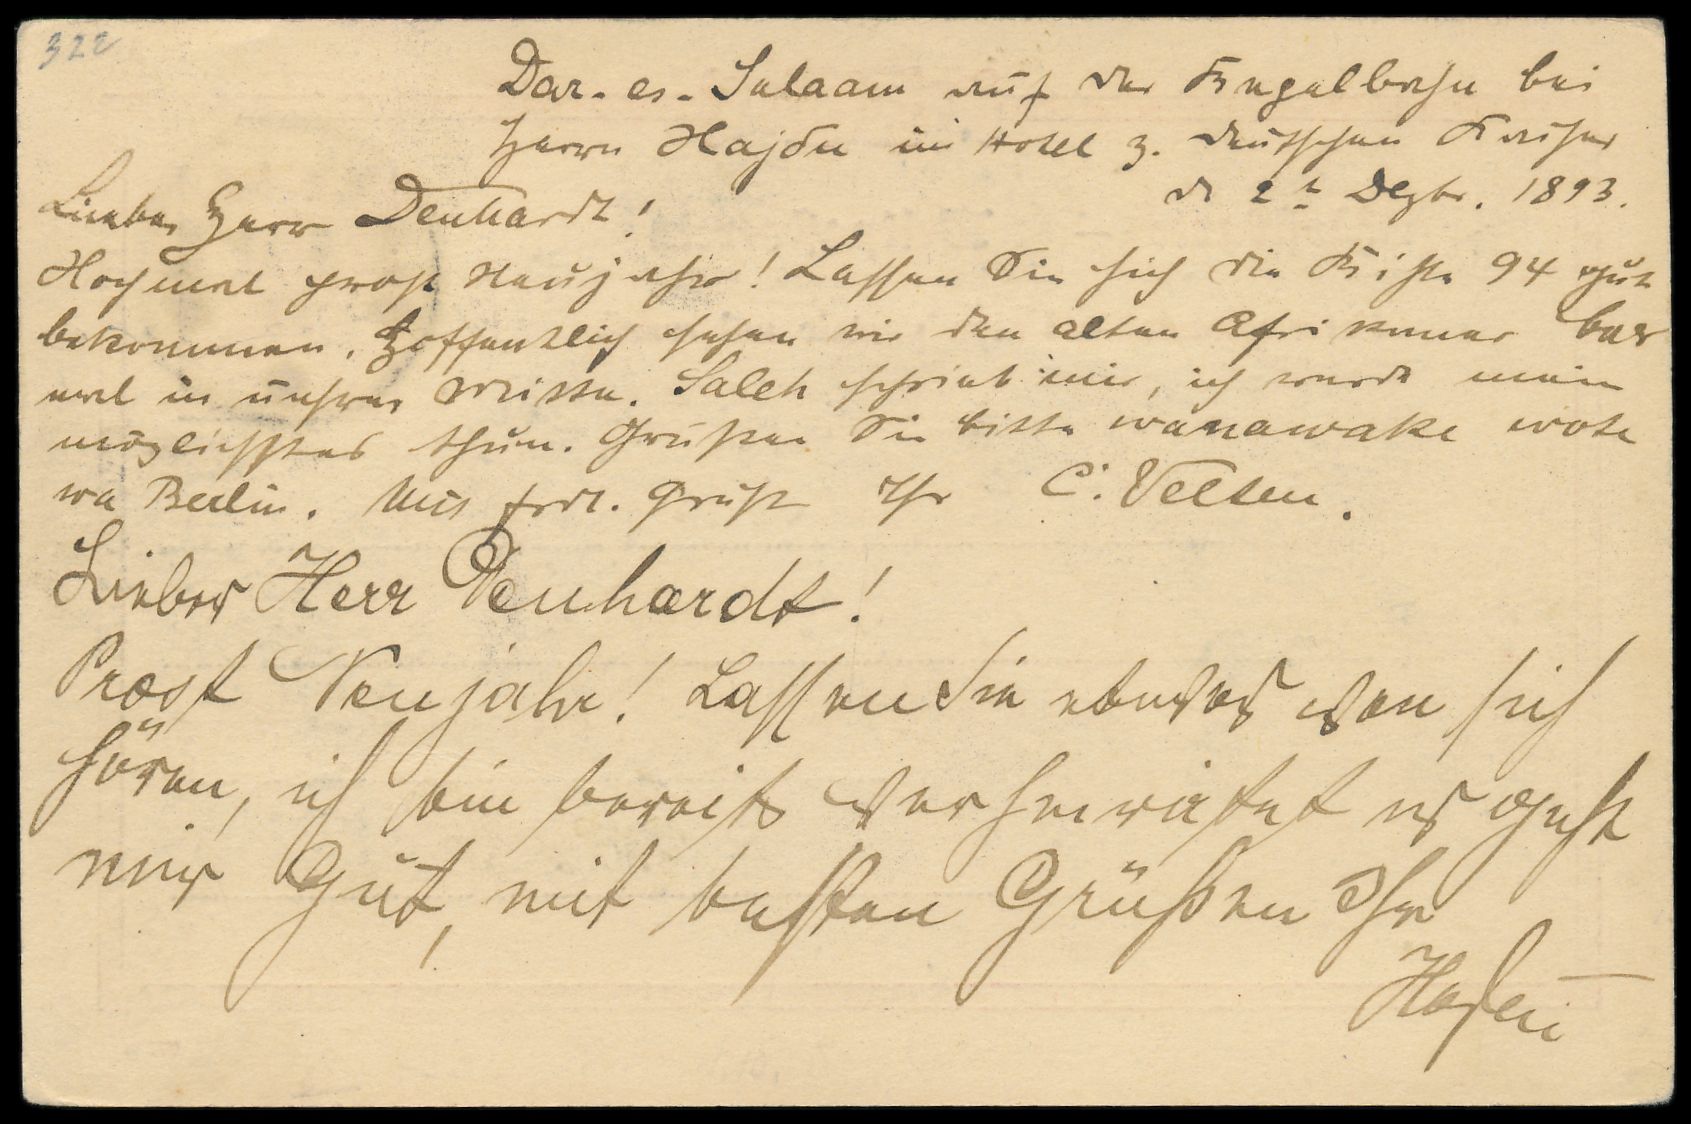 322
Dar-es-Salaam auf der Kegelbahn bei
Herrn Hajdu im Hotel z. deutschen Kaiser
d 2t Dezbr. 1893.
Lieber Herr Denhardt!
Hochmal prosit Neujahr! Lassen Sie sich die Kiste 94 gut
bekommen. Hoffentlich sehen wir den alten Afrikaner
mal in unsrer Mitte. Saleh schrieb mir, ich werde mein
möglichstes thun. Grüßen Sie bitte wanawake wote
wa Berlin. Mit frdl. Gruß Ihr C. Velten.
Lieber Herr Denhardt!
Prost Neujahr! Lassen Sie etwas von sich
hören, ich bin bereits verheiratet es geht
mir Gut, mit besten Grüßen Ihr